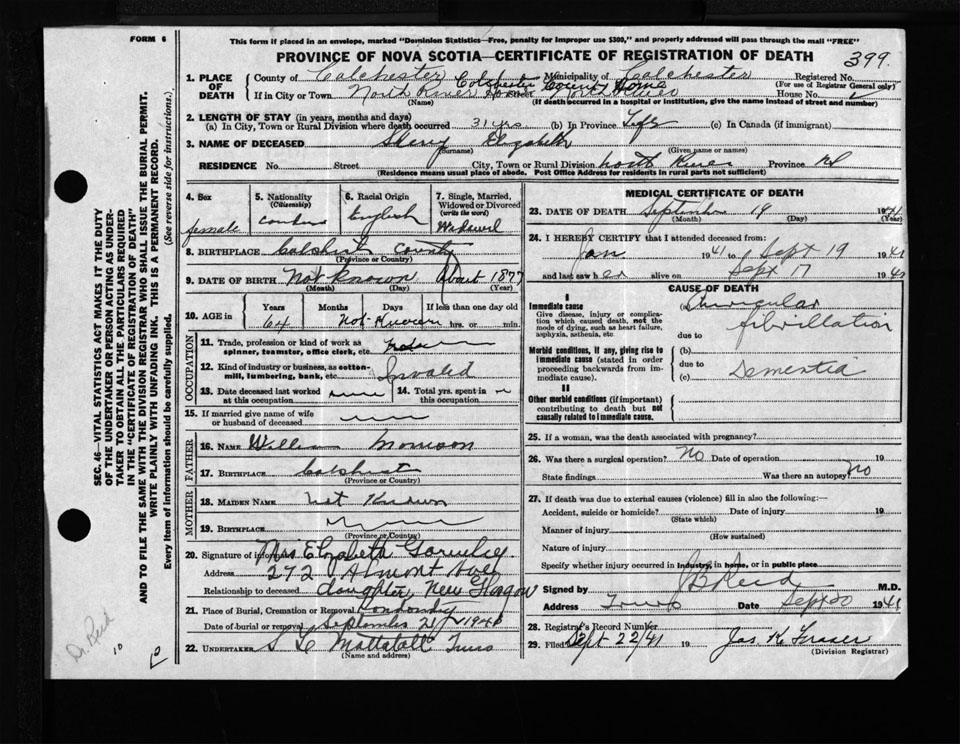 FORM 6
This form if placed in an envelope, marked "Dominion Statistics—Free, penalty for improper use $300," and properly addressed will pass through the mail "FREE"
PROVINCE OF NOVA SCOTIA—CERTIFICATE OF REGISTRATION OF DEATH
399
1. PLACE OF DEATH
County of Colchester Municipality of Colchester Registered No.
(For use of Registrar General only)
Colchester County Home
If in City or Town North River Street House No.
(Name) (If death occurred in a hospital or institution, give the name instead of street and number)
2. LENGTH OF STAY (in years, months and days)
(a) In City, Town or Rural Division where death occurred 31 yrs (b) In Province Life (c) In Canada (if immigrant)
3. NAME OF DECEASED Elizabeth
(Surname) (Given name or names)
RESIDENCE No. Street City, Town or Rural Division North River Province
(Residence means usual place of abode. Post Office Address for residents in rural parts not sufficient)
4. Sex
female
5. Nationality
(Citizenship)
6. Racial Origin
English
7. Single, Married, Widowed or Divorced
(write the word)
Widowed
8. BIRTHPLACE Colchester County
(Province or Country)
9. DATE OF BIRTH Not known About 1877
(Month) (Day) (Year)
10. AGE in
Years
64
Months
Days
Not Known
If less than one day old
hrs. or min.
OCCUPATION
11. Trade, profession or kind of work as spinner, teamster, office clerk, etc.
12. Kind of industry or business, as cotton-mill, lumbering, bank, etc. Invalid
13. Date deceased last worked at this occupation
14. Total yrs. spent in this occupation
15. If married give name of wife or husband of deceased
FATHER
16. NAME William Morrison
17. BIRTHPLACE Colchester
(Province or Country)
MOTHER
18. MAIDEN NAME Not Known
19. BIRTHPLACE
(Province or Country)
20. Signature of Mrs Elizabeth
Address 272 Almont Ave
Relationship to deceased daughter, New Glasgow
21. Place of Burial, Cremation or Removal Londonderry
Date of burial or removal September 21 1941
22. UNDERTAKER Mattatall Truro
(Name and address)
MEDICAL CERTIFICATE OF DEATH
23. DATE OF DEATH September 19 1941
(Month) (Day) (Year)
24. I HEREBY CERTIFY that I attended deceased from:
Jan 1941 to Sept 19 1941
and last saw her alive on Sept 17 1941
CAUSE OF DEATH
I
Immediate cause
Give disease, injury or complication which caused death, not the mode of dying, such as heart failure, asphyxia, asthenia, etc
(a) Auricular
fibrillation
due to
Morbid conditions, if any, giving rise to immediate cause (stated in order proceeding backwards from immediate cause).
(b)
due to
(c) Dementia
II
Other morbid conditions (if important) contributing to death but not causally related to immediate cause.
25. If a woman, was the death associated with pregnancy?
26. Was there a surgical operation? No Date of operation 19
State findings Was there an autopsy? No
27. If death was due to external causes (violence) fill in also the following:—
Accident, suicide or homicide? Date of injury 19
(State which)
Manner of injury
(How sustained)
Nature of injury
Specify whether injury occurred in industry, in home, or in public place
Signed by Reid M.D.
Address Truro Date Sept 20 1941
28. Registrar's Record Number
29. Filed Sept 22/41 19 Jas. K. Fraser
(Division Registrar)
SEC. 46—VITAL STATISTICS ACT MAKES IT THE DUTY
OF THE UNDERTAKER OR PERSON ACTING AS UNDER-
TAKER TO OBTAIN ALL THE PARTICULARS REQUIRED
IN THE "CERTIFICATE OF REGISTRATION OF DEATH"
AND TO FILE THE SAME WITH THE DIVISION REGISTRAR WHO SHALL ISSUE THE BURIAL PERMIT.
WRITE PLAINLY WITH UNFADING INK. THIS IS A PERMANENT RECORD.
Every item of information should be carefully supplied. (See reverse side for instructions.)
Dr. Reid
10